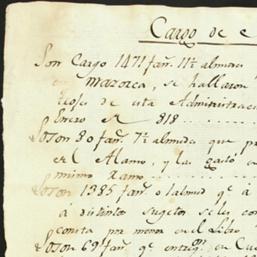 Cargo de e
Son Cargo 1471 fan.s 11½ almud.s
mazorca, se hallaron
de esta Administrac
Enero de 818
Son 80 fan.s 7½ almudes que p
en el Alamo, y las gastó en
mismo Ramo
Son 1385 fan.s 0 almud q.e á
á distintos sugetos se les co
consta por menor en el Libro
Son 69 fan.s q.e entreg en Cu